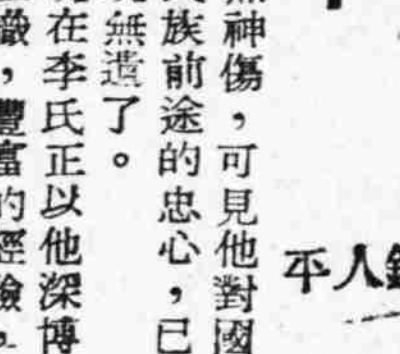 人平
神傷，可見他對國
族前途的忠心，已
無遺了。
在李氏正以他深博
識，豐富的經驗，